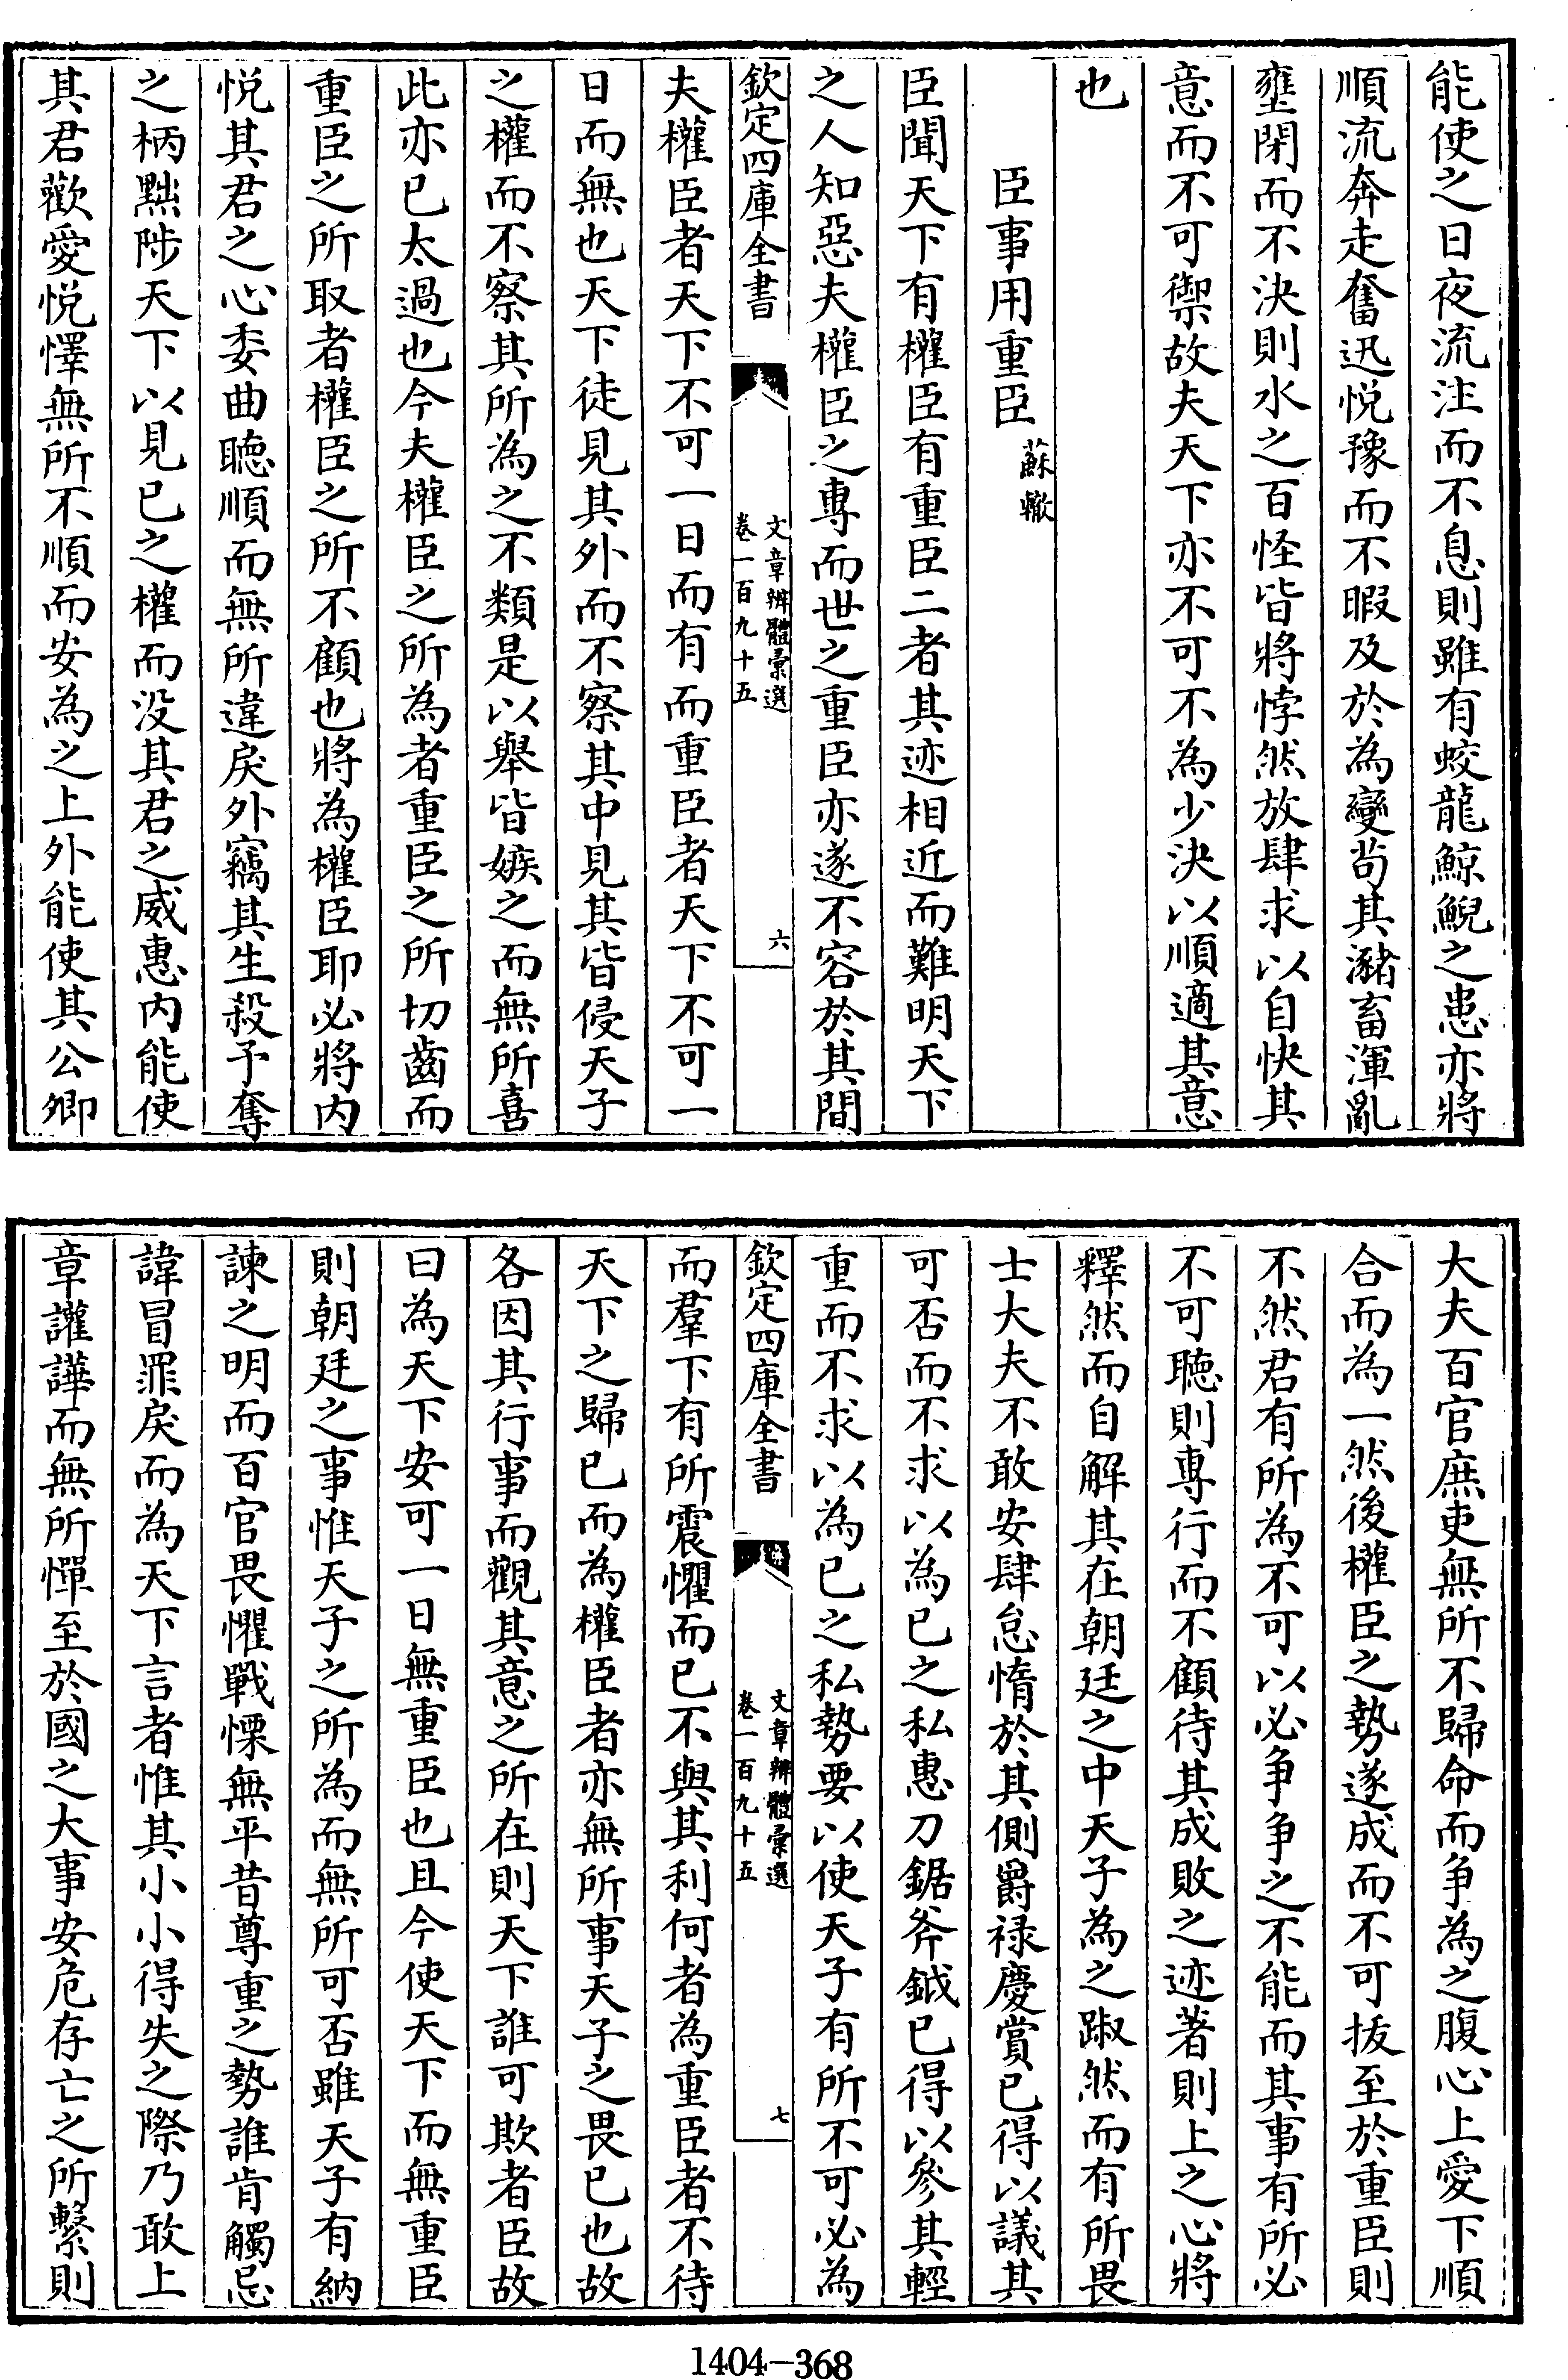 能使之日夜流注而不息則雖有蛟龍鯨鯢之患亦將
順流奔走奮迅悦豫而不暇及於為變苟其瀦畜渾亂
壅閉而不決則水之百怪皆將悖然放肆求以自快其
意而不可禦故夫天下亦不可不為少決以順適其意
也
臣事用重臣 蘇轍
臣聞天下有權臣有重臣二者其迹相近而難明天下
之人知惡夫權臣之專而世之重臣亦遂不容於其間
欽定四庫全書
文章辨體彙選
卷一百九十五
六
夫權臣者天下不可一日而有而重臣者天下不可一
日而無也天下徒見其外而不察其中見其皆侵天子
之權而不察其所為之不類是以舉皆嫉之而無所喜
此亦已太過也今夫權臣之所為者重臣之所切齒而
重臣之所取者權臣之所不顧也將為權臣耶必將内
悦其君之心委曲聽順而無所違戾外竊其生殺予奪
之柄黜陟天下以見已之權而没其君之威惠内能使
其君歡愛悦懌無所不順而安為之上外能使其公卿
大夫百官庶吏無所不歸命而争為之腹心上愛下順
合而為一然後權臣之勢遂成而不可拔至於重臣則
不然君有所為不可以必争争之不能而其事有所必
不可聽則專行而不顧待其成敗之迹著則上之心將
釋然而自解其在朝廷之中天子為之踧然而有所畏
士大夫不敢安肆怠惰於其側爵禄慶賞已得以議其
可否而不求以為已之私惠刀鋸斧鉞已得以參其輕
重而不求以為已之私勢要以使天子有所不可必為
欽定四庫全書
文章辨體彙選
卷一百九十五
七
而羣下有所震懼而已不與其利何者為重臣者不待
天下之歸已而為權臣者亦無所事天子之畏已也故
各因其行事而觀其意之所在則天下誰可欺者臣故
曰為天下安可一日無重臣也且今使天下而無重臣
則朝廷之事惟天子之所為而無所可否雖天子有納
諫之明而百官畏懼戰慄無平昔尊重之勢誰肯觸忌
諱冒罪戾而為天下言者惟其小小得失之際乃敢上
章讙譁而無所憚至於國之大事安危存亡之所繫則
1404-368